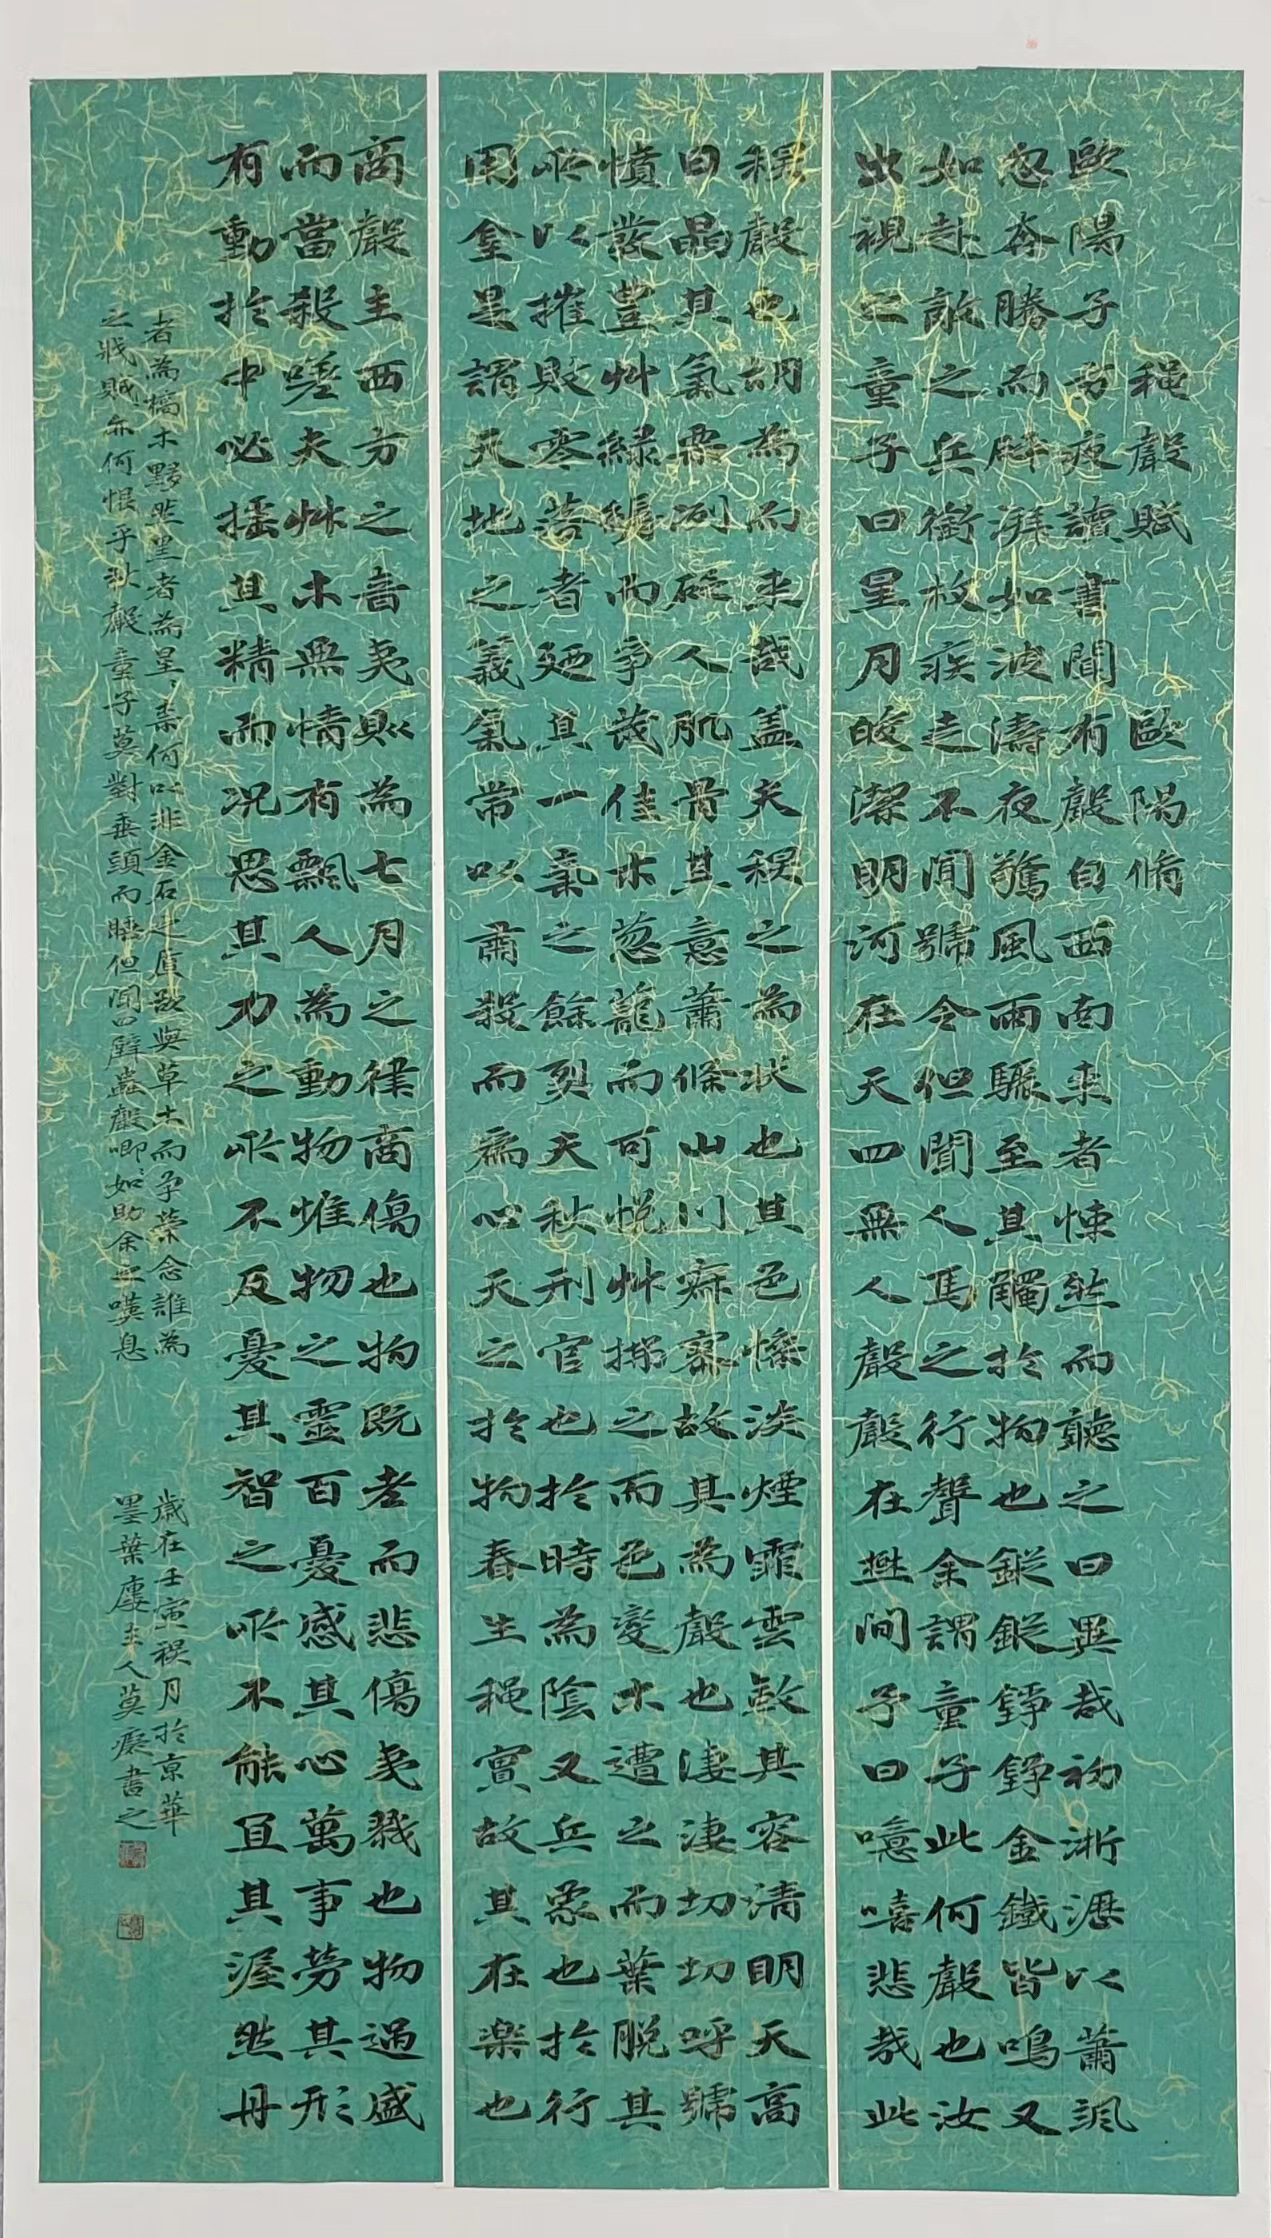 穐聲賦 歐陽脩
歐陽子方夜讀書聞有聲自西南来者悚然而聽之曰異哉初淅瀝以蕭颯
忽奔騰而砰湃如波濤夜驚風雨驟至其觸於物也鏦鏦錚錚金鐵皆鳴又
如赴敵之兵銜枚疾走不聞號令但聞人馬之行聲余謂童子此何聲也汝
出視之童子曰星月皎潔明河在天四無人聲聲在樹間予曰噫嘻悲哉此
秋聲也胡為而来哉盖夫秋之為狀也其色慘淡煙霏雲斂其容清明天高
日晶其氣栗冽砭人肌骨其意蕭條山川寂寥故其為聲也淒淒切切呼號
憤發豐艸綠縟而爭茂佳木蔥蘢而可悅艸拂之而色變木遭之而葉脫其
所以摧敗零落者廼其一氣之餘烈夫秋刑官也於時為陰又兵象也於行
用金是謂天地之義氣常以肅殺而為心天之於物春生穐實故其在樂也
商聲主西方之音夷則為七月之律商傷也物既老而悲傷夷戮也物過盛
而當殺嗟夫艸木無情有飄人為動物惟物之靈百憂感其心萬事勞其形
有動於中必搖其精而況思其力之所不及憂其智之所不能宜其渥然丹
者為槁木黟然黑者為星〻柰何以非金石之質欲與草木而爭榮念誰為
之戕賊亦何恨乎秋聲童子莫對垂頭而睡但聞四壁蟲聲唧〻如助余之嘆息
歲在壬寅秋月於京華
墨葉廔主人莫癡書之